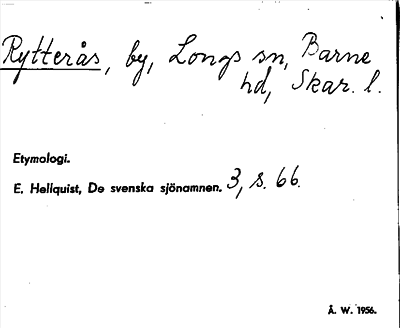 Rytterås, by, Longs sn, Barne
hd, Skar. l.
Etymologi.
E. Hellquist, De svenska sjönamnen. 3, s. 66.
Å. W. 1956.